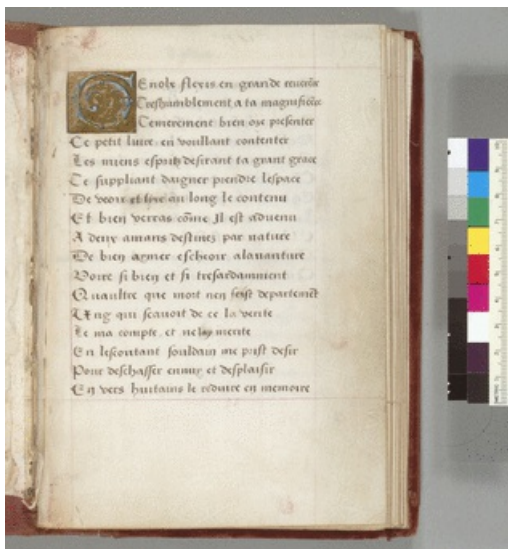 Genolz flexis en grande reverēce
Treshumblement a ta magnificēce
Temerement bien oze presenter
Ce petit livre, en voullant contenter
Les miens espritz desirant ta grant grace
Te suppliant daigner prendre lespace
De veoir et lire au long le contenu
Et bien verras cōme Jl est advenu
A deux amans destinez par nature
De bien aymer escheoir alavanture
Voire si bien et si tresardamment
Quaultre que mort nen feist departemēt
Ung qui scavoit de ce la verite
Le ma compte, et ne lay merite
En lescoutant souldain me prist desir
Pour deschasser ennuy et desplaisir
En vers huitains le reduire en memoire